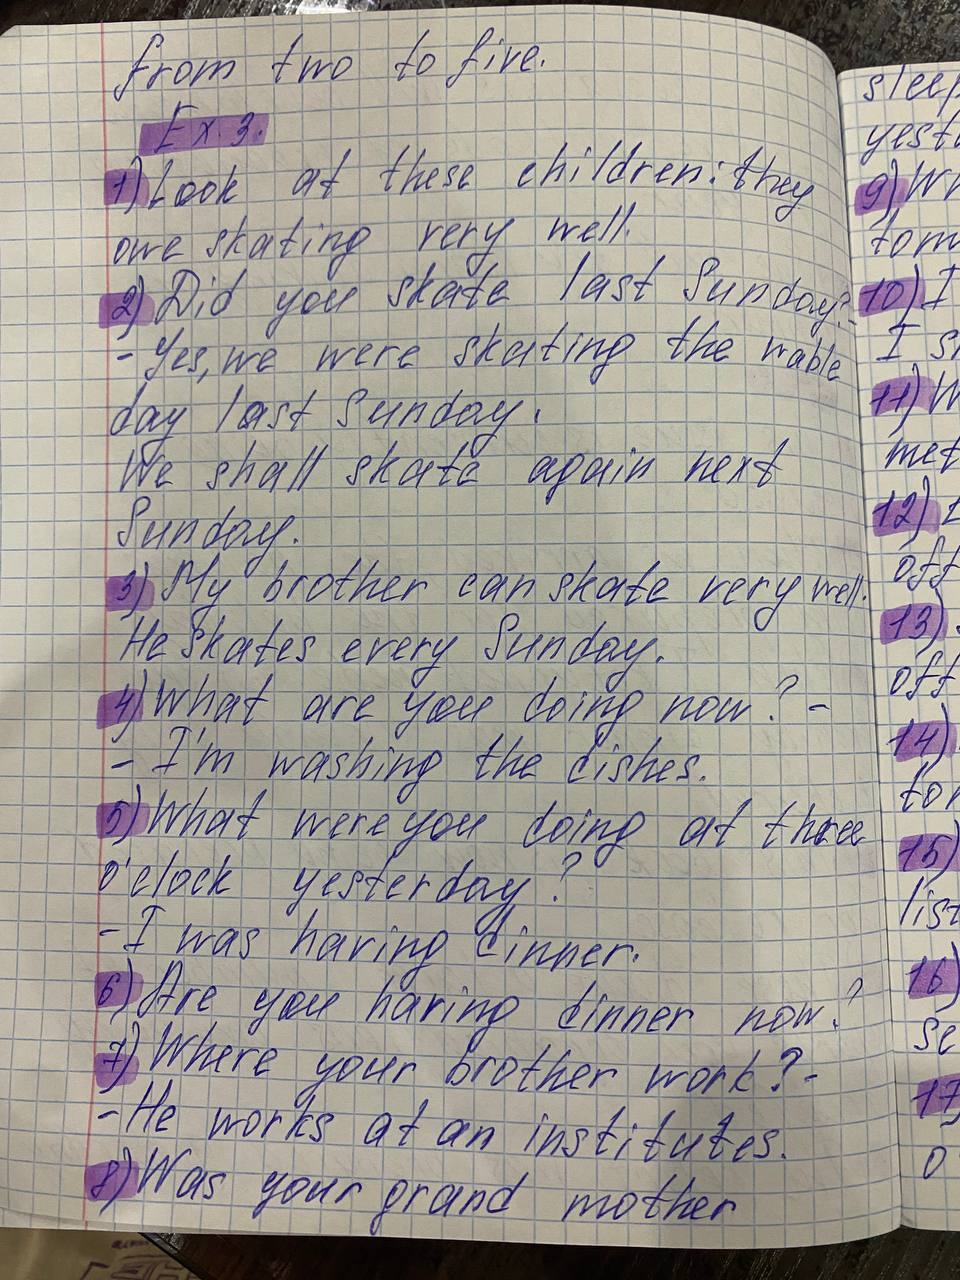 from two to five.
Ex. 3.
1) Look at these children: they
are skating very well.
2) Did you skate last Sunday? -
- Yes, we were skating the wable
day last Sunday.
We shall skate again next
Sunday.
3) My brother can skate very well.
He skates every Sunday.
4) What are you doing now? -
- I'm washing the dishes.
5) What were you doing at three
o'clock yesterday?
- I was having dinner.
6) Are you having dinner now?
7) Where your brother work? -
- He works at an institutes.
8) Was your grand mother
sleep
yest
9) Wh
tom
10) I
I s
11) W
met
12)
off
13)
off
14)
tor
15)
list
16)
se
17)
o